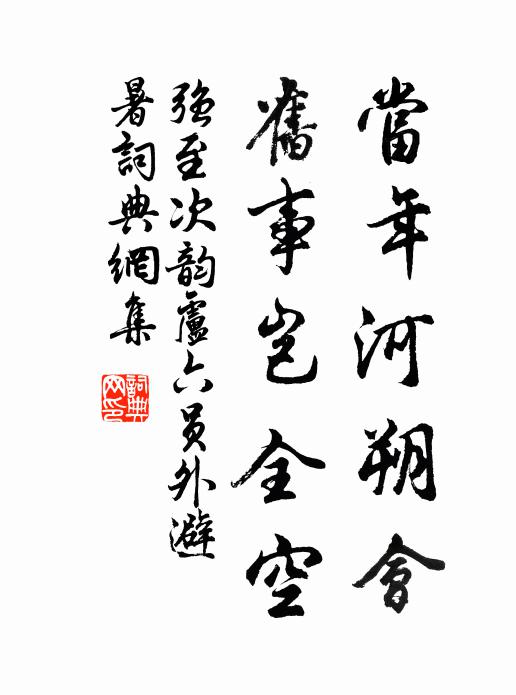 當年河朔會
舊事豈全空
強至次韵盧六員外避
暑詞典網集
詞典網印